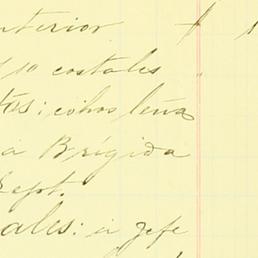 nterior
10 costales
tós; cohos leña
a Brígida
Sept.
ales: ir jefe